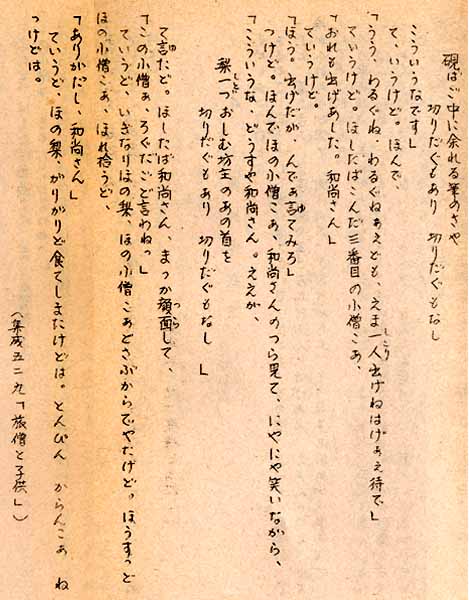 硯ばご中に余れる筆のさや
切りだぐもあり 切りだぐもなし
こういうなです」
て、いうけど。ほんで、
「うう、わるぐね、わるぐねぁえども、えま一人出げねはげぁえ待で」
しこり
ていうけど。ほしたばこんだ三番目の小僧こあ、
「おれも出げあした。和尚さん」
ていうけど。
「ほう。出げだが、んでぁ言てみろ」
ゆ
つけど。ほんでほの小僧こあ、和尚さんのつら見て、にやにや笑いながら、
「こういうな、どうすや和尚さん。ええが、
梨一つおしむ坊主のあの首を
切りだぐもあり 切りだぐもなし 」
て言たど。ほしたば和尚さん、まっか顔面して、
ゆ
つら
「この小僧ぁ、ろぐだごど言わねっ」
ていうど、いきなりほの梨、ほの小僧こあどさぶからでやだけど。ほうすっど
ほの小僧こぁ、ほれ拾うど、
「ありがだし、和尚さん」
ていうど、ほの梨、がりがりど食てしまたけどは。とんぴん からんこぁ ね
っけどは。
(集成五二九「旅僧と子供」)